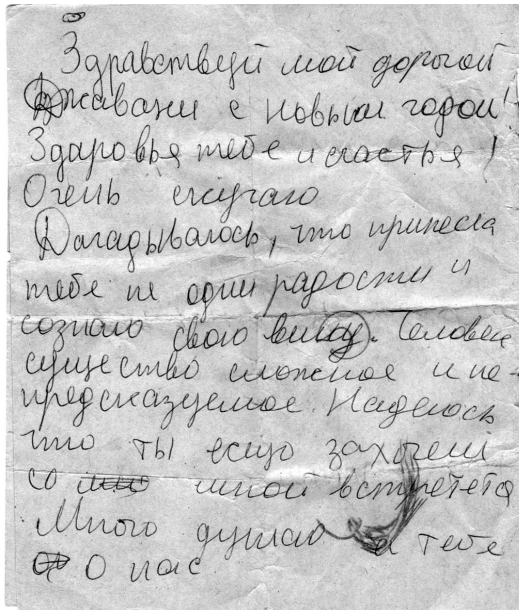 Здравствуй мой дорогой
Джавани с новым годом!
Здаровья тебе и счастья!
Очень скучаю
Догадывалось, что принесла
тебе не одни радости и
сознаю свою вину. Человек
существо сложное и не-
предсказуемое. Надеюсь
что ты ещо захочеш
со мной встретется
Много думаю о тебе
О нас